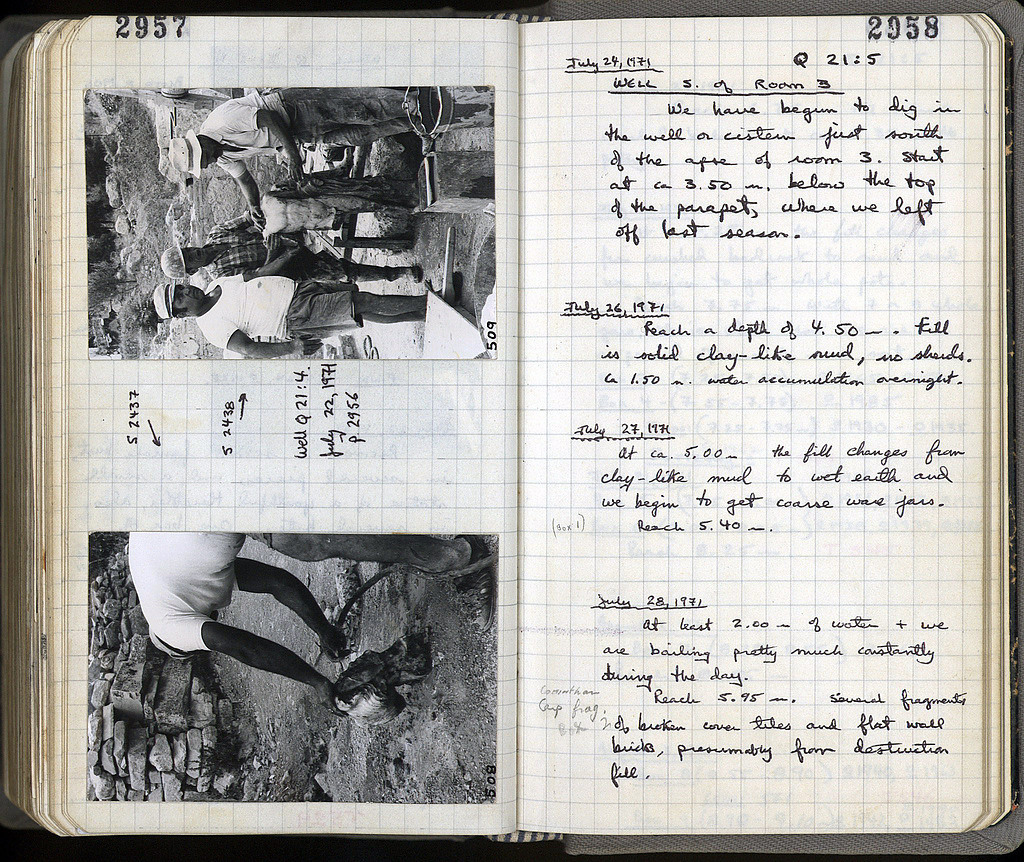 2957
509
S 2437
S 2438
Well Q 21:4.
July 22, 1971
p 2956
508
2958
July 24, 1971
Q 21:5
WELL S. of Room 3
We have begun to dig in
the well or cistern just south
of the apse of room 3. Start
at ca 3.50 m. below the top
of the parapet, where we left
off last season.
July 26, 1971
Reach a depth of 4.50 m. Fill
is solid clay-like mud, no sherds.
Ca 1.50 m. water accumulation overnight.
July 27, 1971
At ca. 5.00 m the fill changes from
clay-like mud to wet earth and
we begin to get coarse ware jars.
(Box 1)
Reach 5.40 m.
July 28, 1971
At least 2.00 m of water + we
are bailing pretty much constantly
during the day.
Reach 5.95 m. Several fragments
Corinthian
Lamp frag.
Box 2
of broken cover tiles and flat wall
bricks, presumably from destruction
fill.